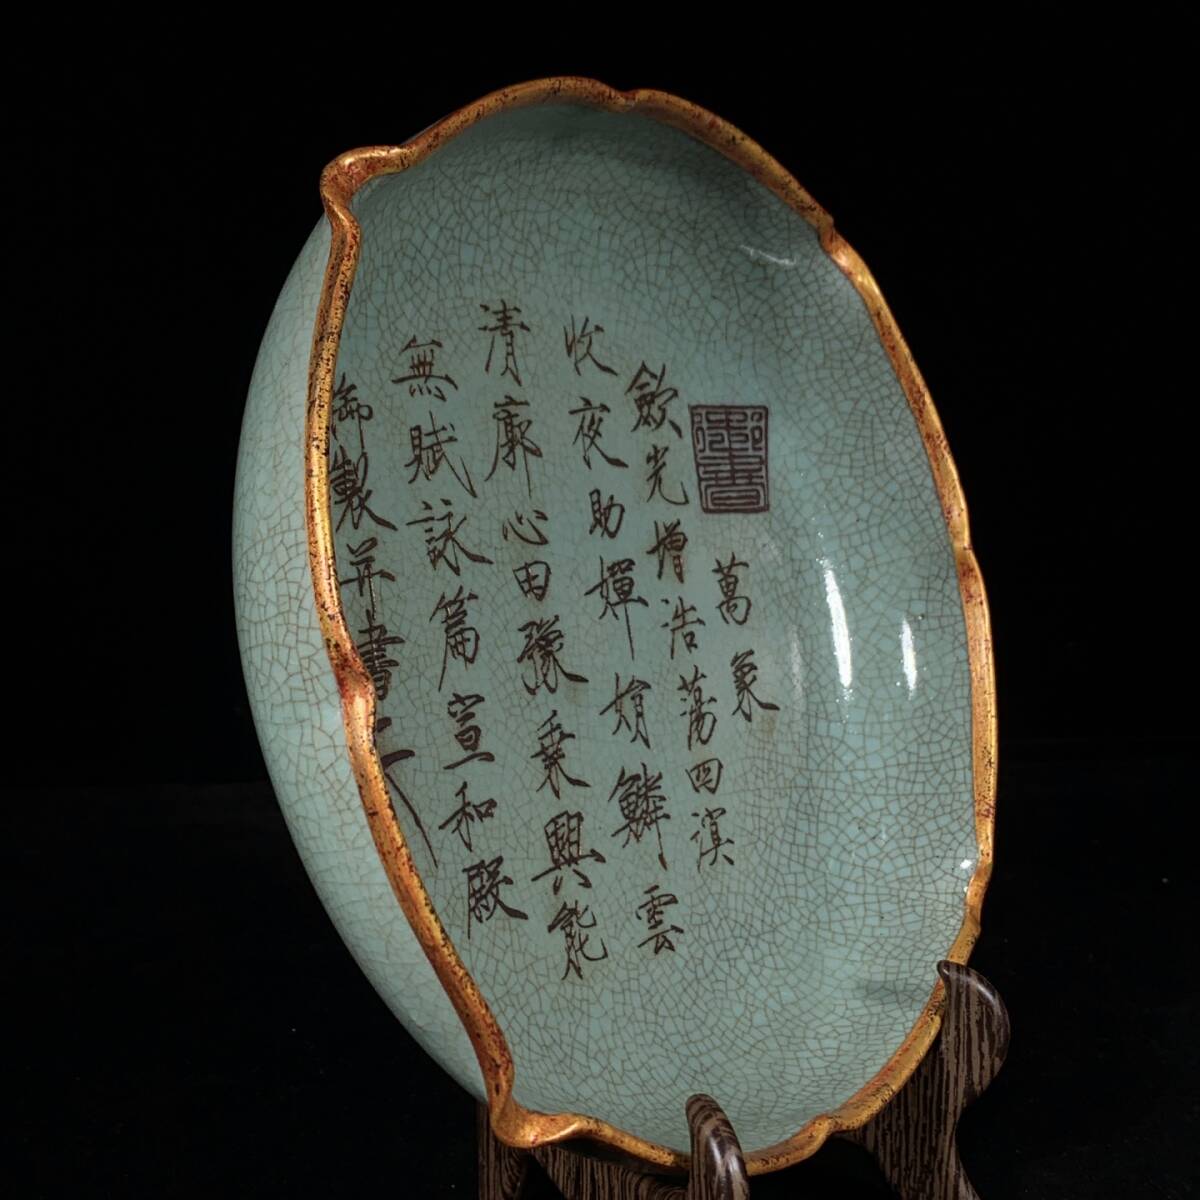 御書
萬象
歛光增浩蕩四溟
收夜助嬋娟鱗雲
清廓心田豫乘興能
無賦詠篇宣和殿
御製并書